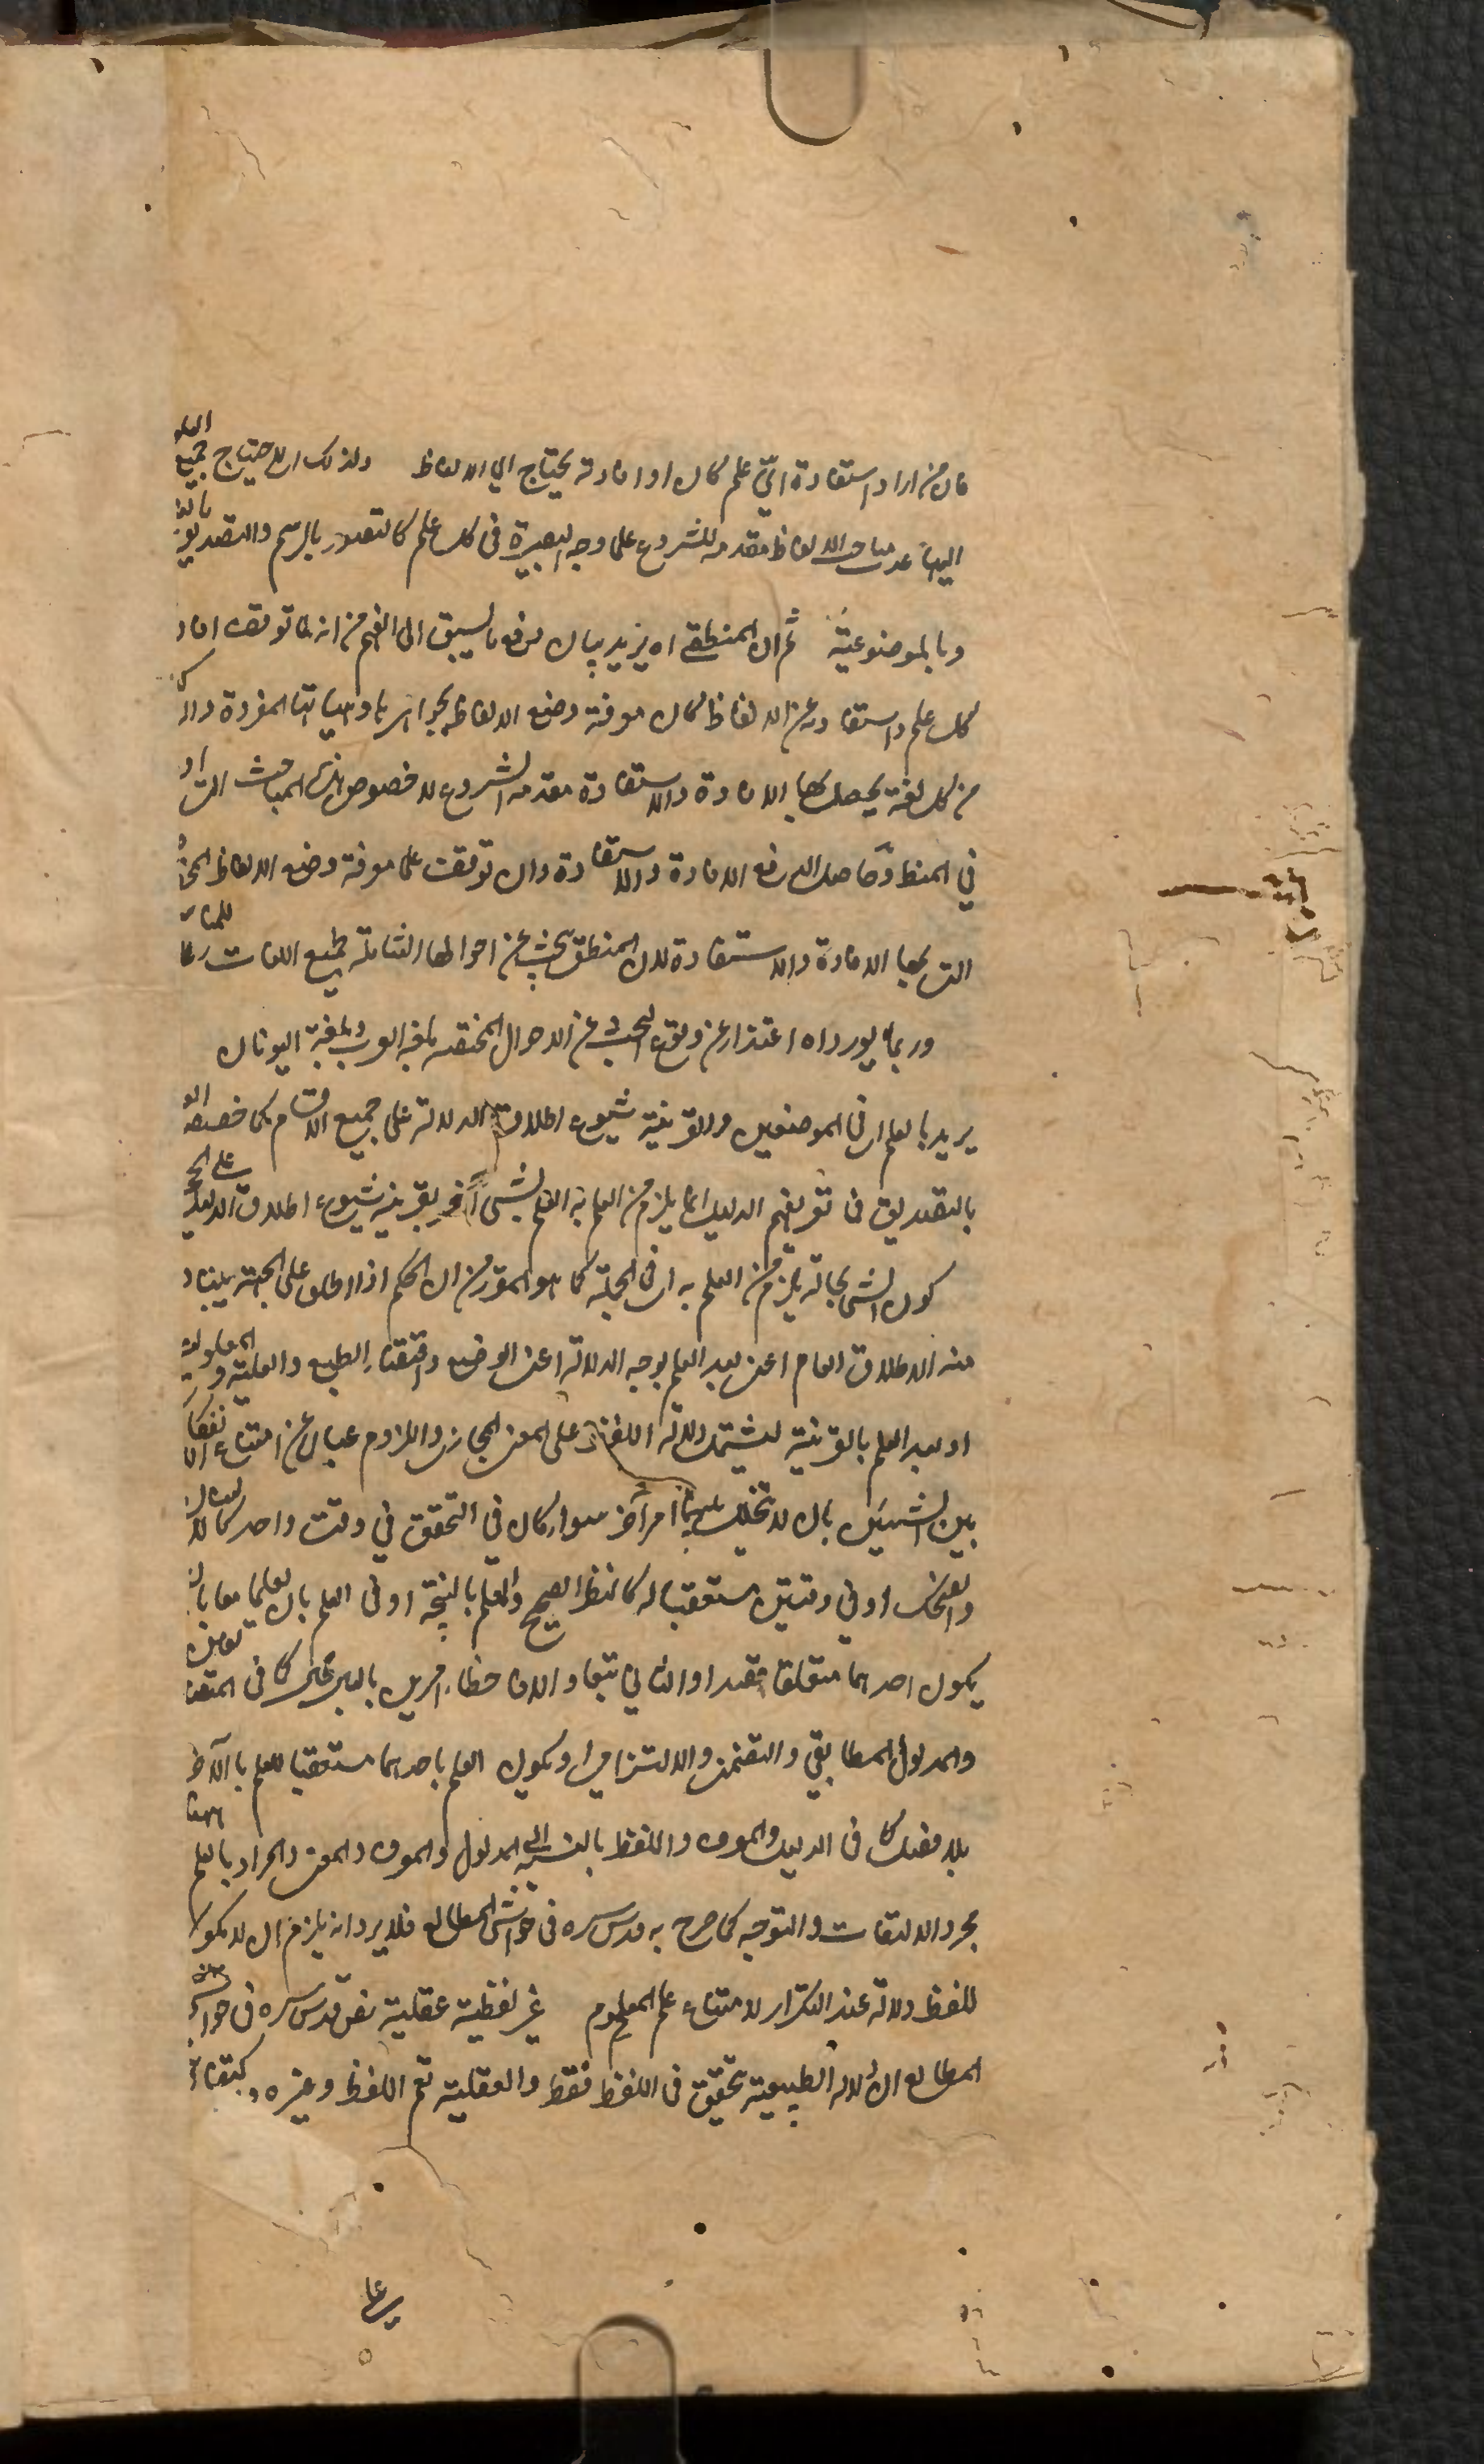 فان من اراد استفادة ايّ علم كان او افادته يحتاج الى الالفاظ ولذلك الاحتياج جميع العلو
اليها عد مباحث الالفاظ مقدمة للشروع على وجه البصيرة فى كل علم كالتصور بالرسم والتصديق بالغا
وبالموضوعية ثم ان المنطقى اه يزيد بيان لرفع ما يسبق الى الفهم من انه لما توقف افاد
كل علم واستفادته عن الالفاظ كان معرفة وضع الالفاظ بجواهرها وهيئاتها المفردة والمر
من كل لغة يحصل بها الافادة والاستفادة مقدمة الشروع لا خصوص هذه المباحث التى او
في المنطق وحاصل الدفع الافادة والاستفادة وان توقفت على معرفة وضع الالفاظ المخ
التى بها الافادة والاستفادة لان المنطق يبحث عن احوالها الشاملة لجميع اللغات رعا للمناسـ
وربما يورد اه اعتذار عن وقوع البحث عن الاحوال المختصة بلغة العرب وبلغة اليونان
يريد بالعلم اى فى الموضعين والقرينة شيوع اطلاق الدلالة على جميع الاقسام كما خصصه الو
بالتصديق فى تعريفهم الدليل بما يلزم من العلم به العلم بشىء آخر بقرينة شيوع اطلاق الدليل على الحجـ
كون الشىء بحالة يلزم من العلم به اى فى الجملة كما هو المقرر من ان الحكم اذا اطلق على الجهة يتباد
منه الاطلاق العام اعنى بعد العلم بوجه الدلالة اعنى الوضع واقتضاء الطبع والعلية والمعلولية
او بعد العلم بالقرينة ليشتمل دلالة اللفظ على المعنى المجازى واللزوم عبارة عن امتناع الانفكا
بين الشيئين بان لا تخلل بينهما امر آخر سواء كان فى التحقق في وقت واحد كالانسان
والضحك او في وقتين متعقبا له كالنظر الصحيح والعلم بالنتيجة او فى العلم بان يعلما معا بان
يكون احدهما متعلقا قصدا والثاني تبعا والاخطار امرين بالبال كما فى المتضايفين
والمدلول المطابقي والتضمني والالتزامى او يكون العلم باحدهما مستعقبا للعلم بالآخر
بلا مضىّ كما فى الدليل والمعرف واللفظ بالنسبة الى المدلول والمعرف والمعنى والمراد بالعلم ههنا
مجرد الالتفات والتوجه كما صرح به قدس سره فى حواشى المطالع فلا يرد انه يلزم ان لا يكون
للفظ دلالة عند التكرار لامتناع علم المعلوم غير لفظية عقلية نص قدس سره فى حواشى
المطالع ان الدلالة الطبيعية تتحقق فى اللفظ فقط والعقلية تعم اللفظ وغيره